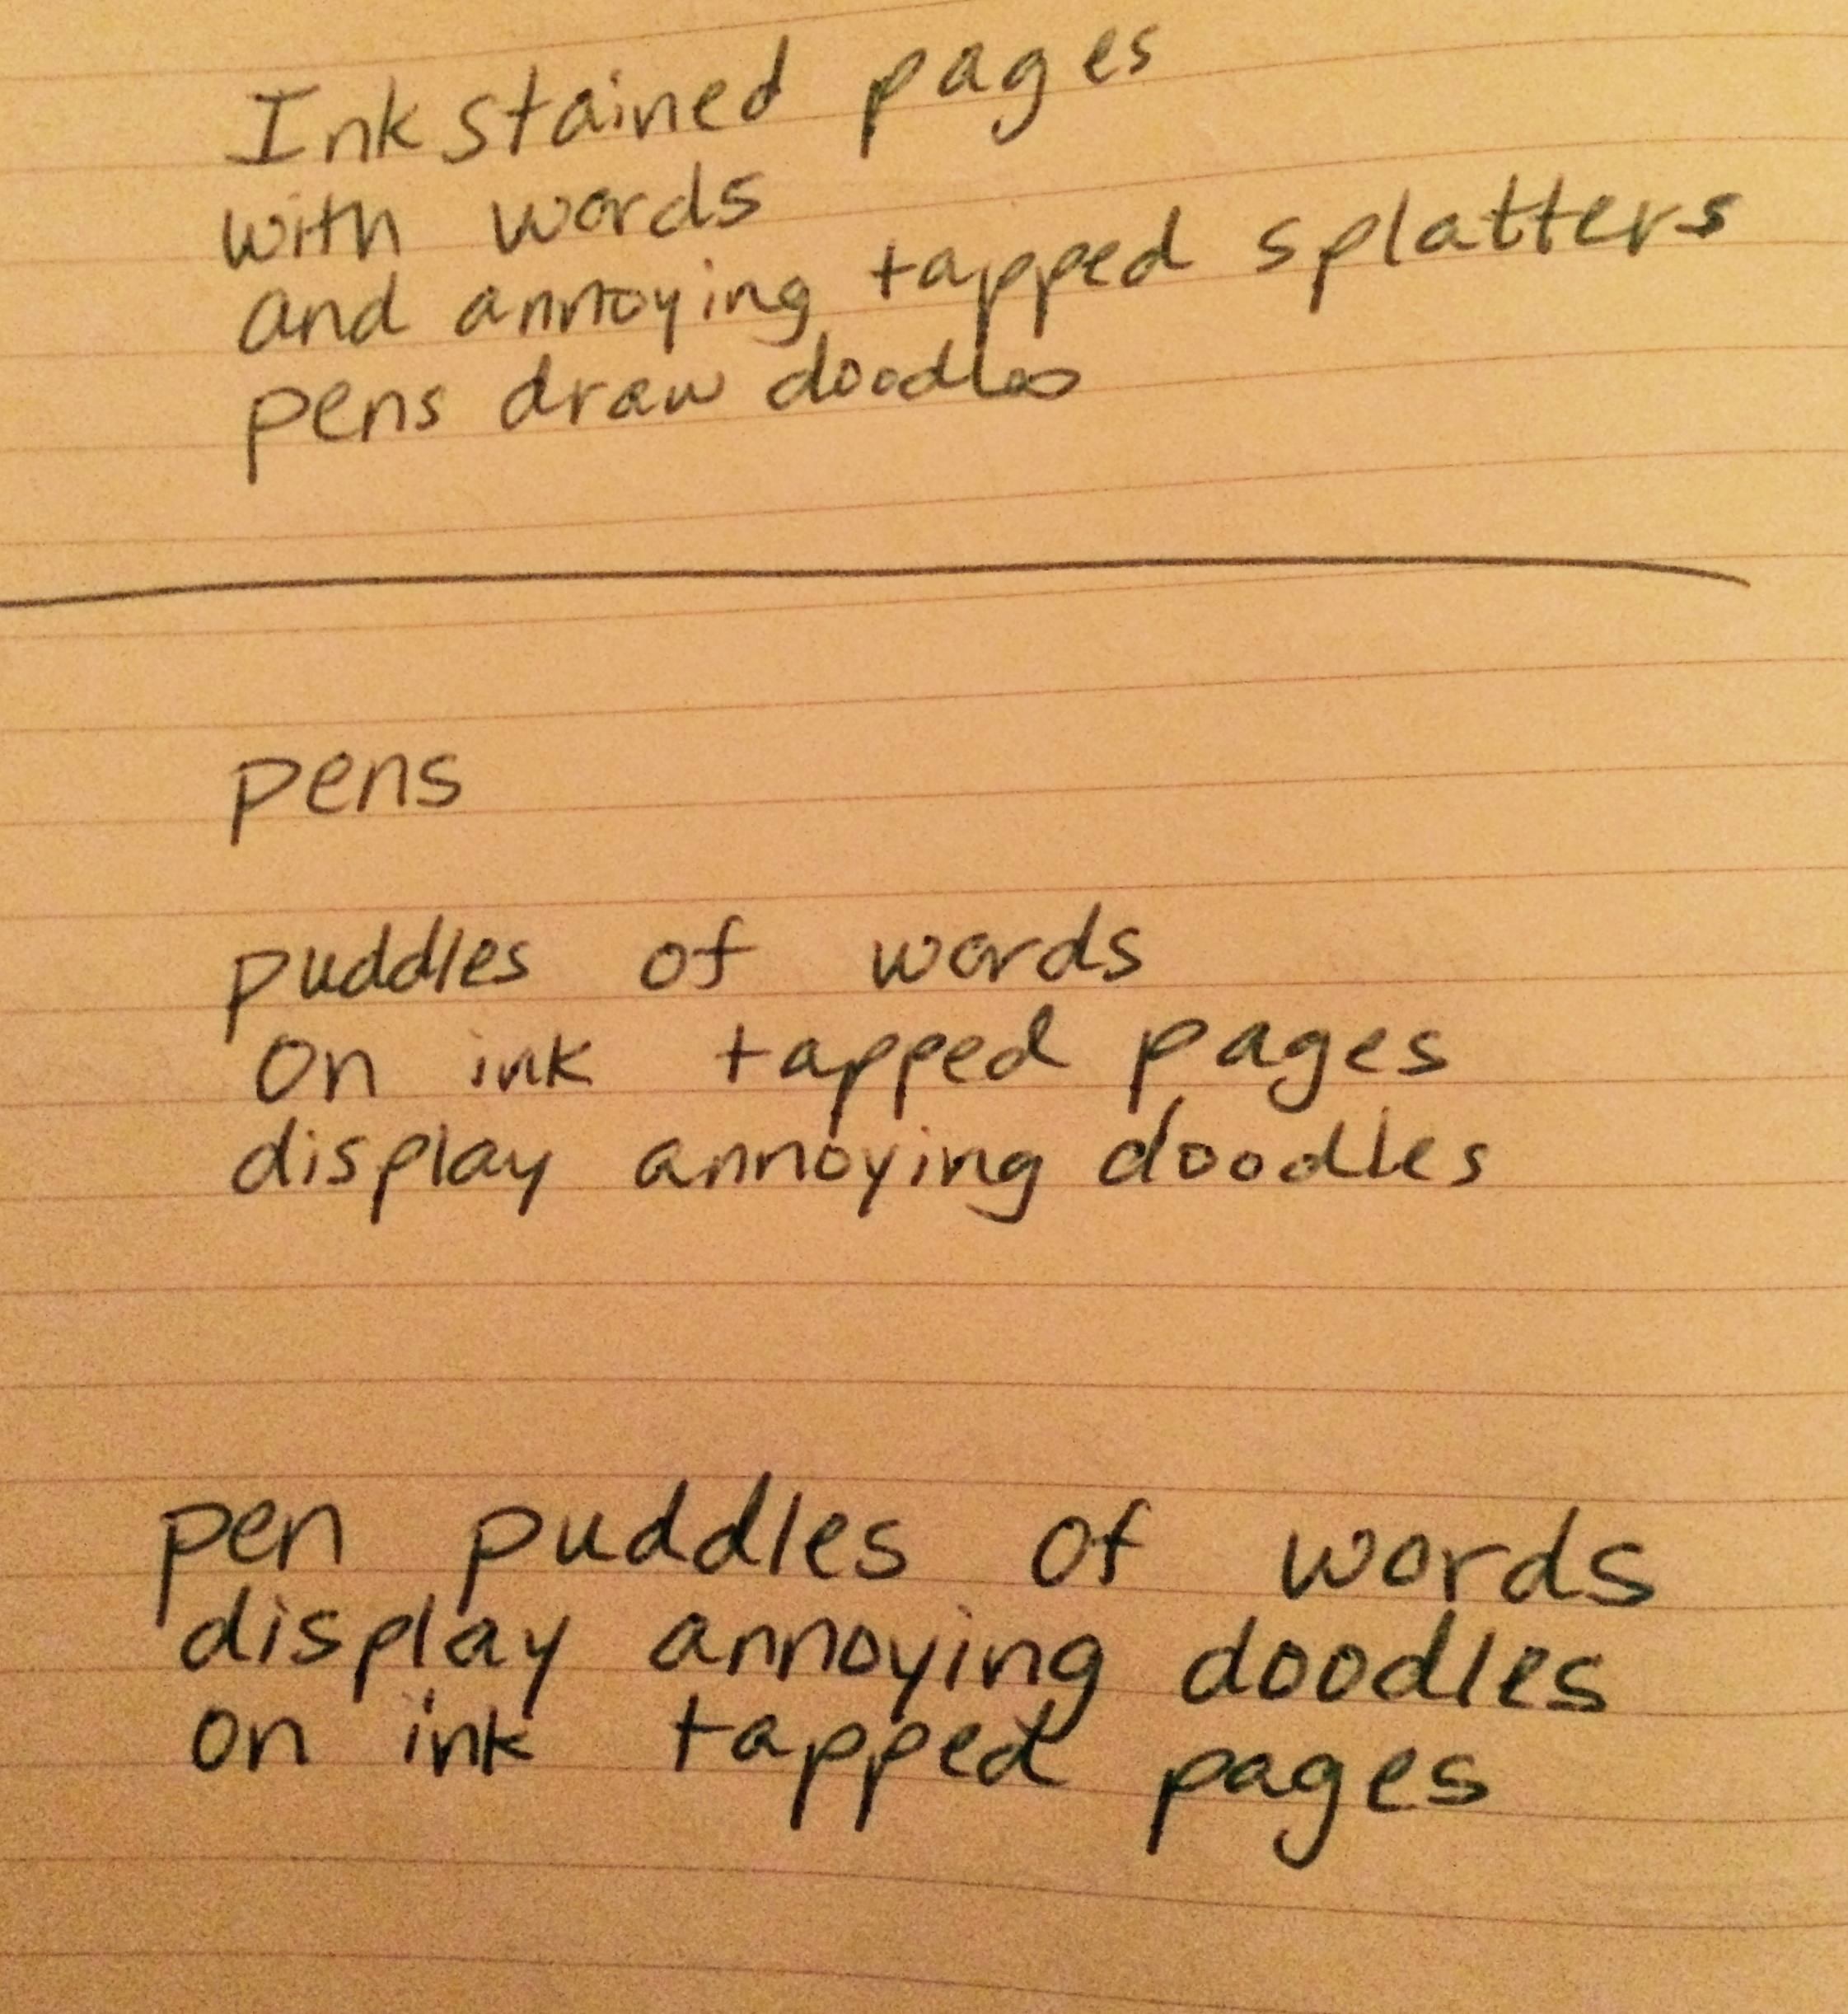 Ink stained pages
with words
and annoying tapped splatters
pens draw doodles
pens
puddles of words
on ink tapped pages
display annoying doodles
pen puddles of words
display annoying doodles
on ink tapped pages